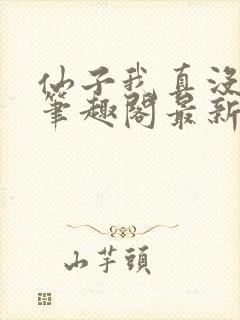 仙子我真没
筆趣閣最新
山芋頭